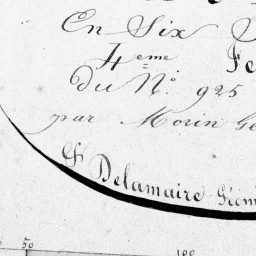 En Six
4eme Fe
du No. 925
par Morin Gé
Delamaire Géom
50 100